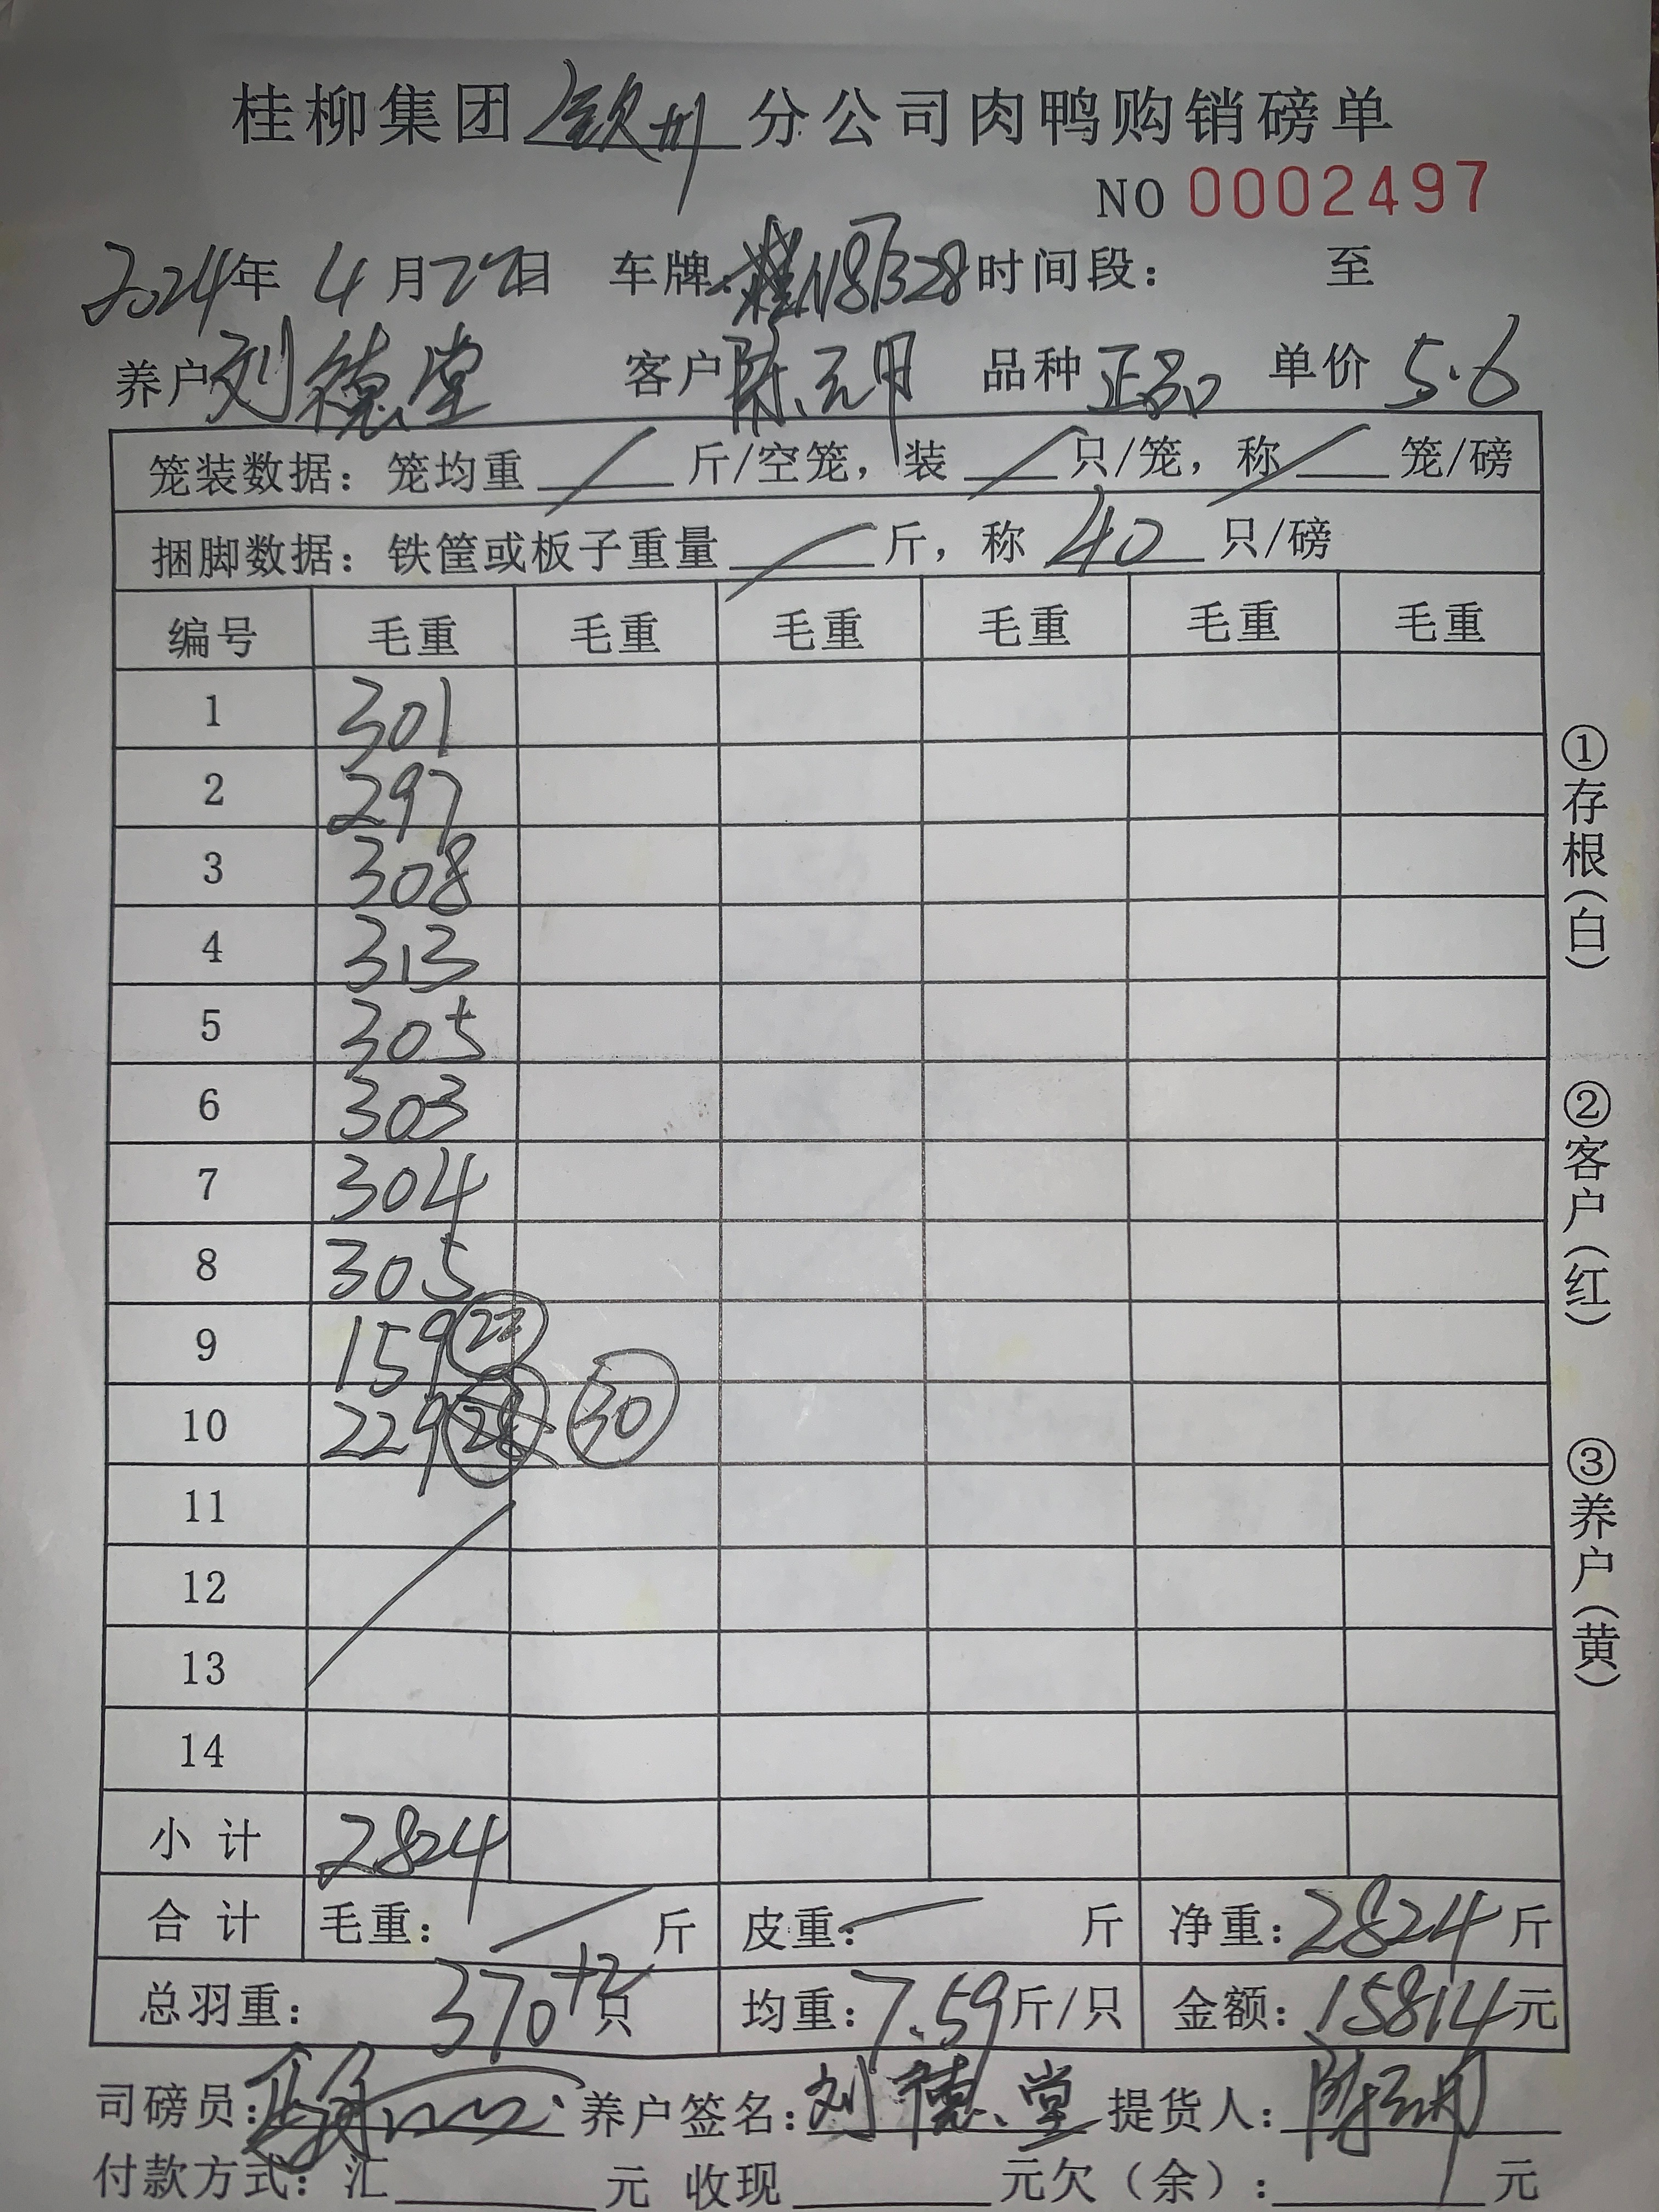 桂柳集团钦州分公司肉鸭购销磅单
NO 0002497
2024年 4月27日 车牌:桂N8B328 时间段: 至
养户 刘德堂 客户 陈元月 品种 正品 单价 5.6
笼装数据:笼均重 / 斤/空笼,装 / 只/笼,称 / 笼/磅
捆脚数据:铁筐或板子重量 / 斤,称 40 只/磅
编号 毛重 毛重 毛重 毛重 毛重 毛重
1 301
2 297
3 308
4 313
5 305
6 303
7 304
8 305
9 159 22
10 229 30
11
12
13
14
小计 2824
合计 毛重: / 斤 皮重: / 斤 净重:2824斤
总羽重: 370+2只 均重:7.59斤/只 金额:15814元
司磅员: 养户签名:刘德堂 提货人:陈元月
付款方式:汇 元 收现 元欠(余): 元
①存根(白)
②客户(红)
③养户(黄)